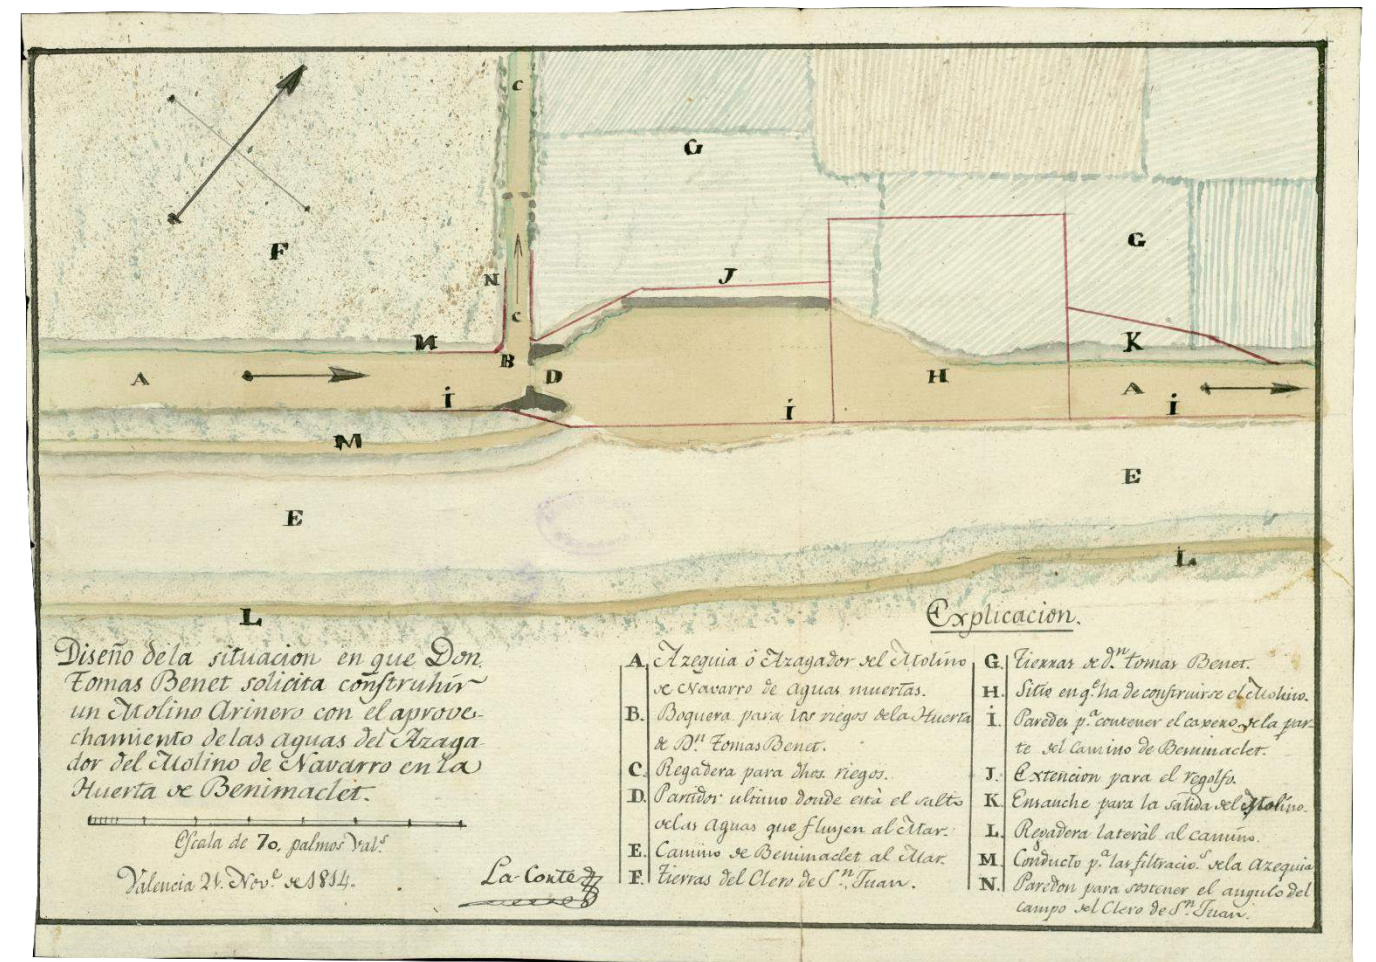 C
G
F
G
N
C
J
M
B
K
A
D
H
A
İ
İ
İ
M
E
E
L
L
Diseño dela situacion en que Don
Tomas Benet solicita construhir
un Molino Arinero con el aprove-
chamiento de las aguas del Azaga-
dor del Molino de Navarro en la
Huerta de Benimaclet.
Escala de 70, palmos Val.s
Valencia 21. Nov.e de 1814.
La-Corte
Explicacion.
A. Azequia ó Azagador del Molino
de Navarro de aguas muertas.
B. Boquera para los riegos dela Huerta
de D.n Tomas Benet.
C. Regadera para dhos. riegos.
D. Partidor ultimo donde està el salto
delas Aguas que fluyen al Mar.
E. Camino de Benimaclet al Mar.
F. Tierras del Clero de S.n Juan.
G. Tierras de d.n tomas Benet.
H. Sitio en q.e ha de construirse el Molino.
İ. Paredes p.a contener el caxero dela par-
te del Camino de Benimaclet.
J. Extencion para el regolfo.
K. Ensanche para la salida del Molino.
L. Regadera lateràl al camino.
M. Conducto p.a las filtracio.s dela azequia
N. Paredon para sostener el angulo del
campo del Clero de S.n Juan.